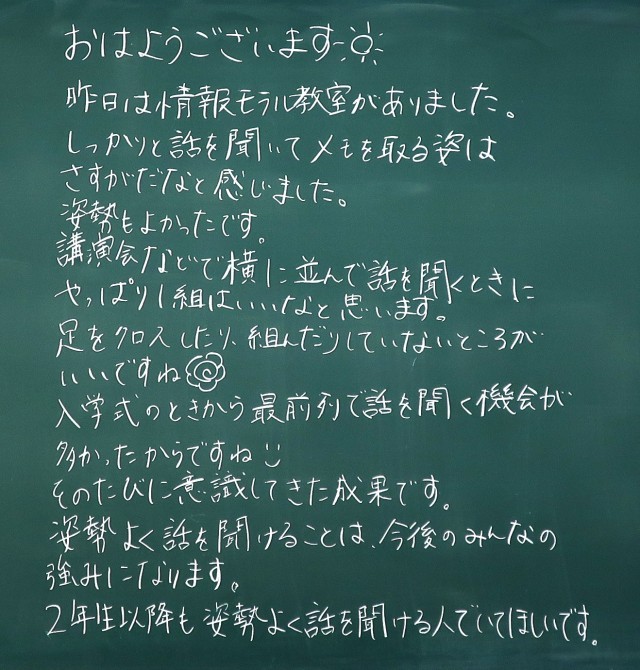 おはようございます
昨日は情報モラル教室がありました。
しっかりと話を聞いてメモを取る姿は
さすがだなと感じました。
姿勢もよかったです。
講演会などで横に並んで話を聞くときに
やっぱり1組はいいなと思います。
足をクロスしたり、組んだりしていないところが
いいですね
入学式のときから最前列で話を聞く機会が
多かったからですね
そのたびに意識してきた成果です。
姿勢よく話を聞けることは、今後のみんなの
強みになります。
2年生以降も姿勢よく話を聞ける人でいてほしいです。